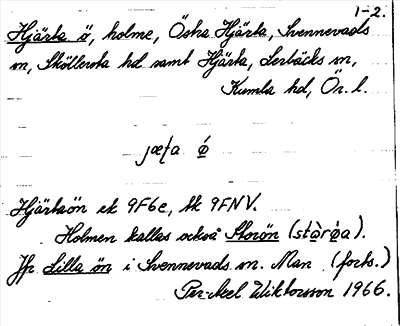 1-2.
Hjärta ö, holme, Östra Hjärta, Svennevads
sn, Sköllersta hd samt Hjärta, Lerbäcks sn,
Kumla hd, Ör. l.
jæʈa ǿ
Hjärtaön ek 9F6e, tk 9FNV.
Holmen kallas också Storön (stò̩rǿ̩a).
Jfr Lilla ön i Svennevads sn. Man (forts.)
Per-Axel Wiktorsson 1966.